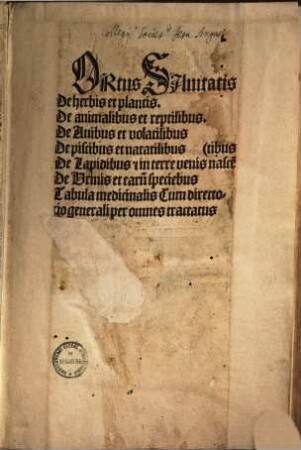 Collegij Societ. Jesu
ORtus Sanitatis
De herbis et plantis.
De animalibus et reptilibus.
De Auibus et volatilibus
De piscibus et natatilibus (tibus
De Lapidibus ⁊ in terre venis nascē
De Vrinis et earū speciebus
Tabula medicinalis Cum directo⸗
rio generali per omnes tractatus